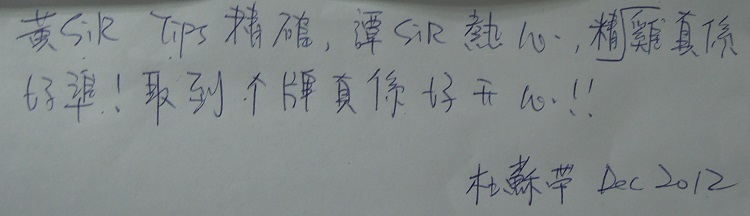 黃SiR Tips 精確, 譚SiR 熱心, 精雞真係
好準! 取到个牌真係好开心!!
杜蘇華 Dec 2012